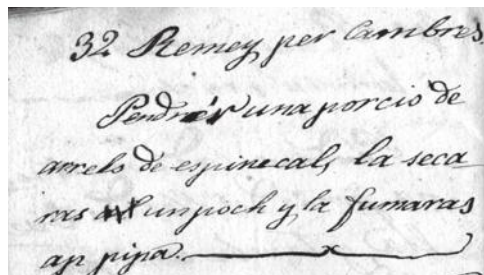 32 Remey per Cambres.
Pendrás una porció de
arrels de espinacal, la seca
ras un poch y la fumaras
ap pipa.